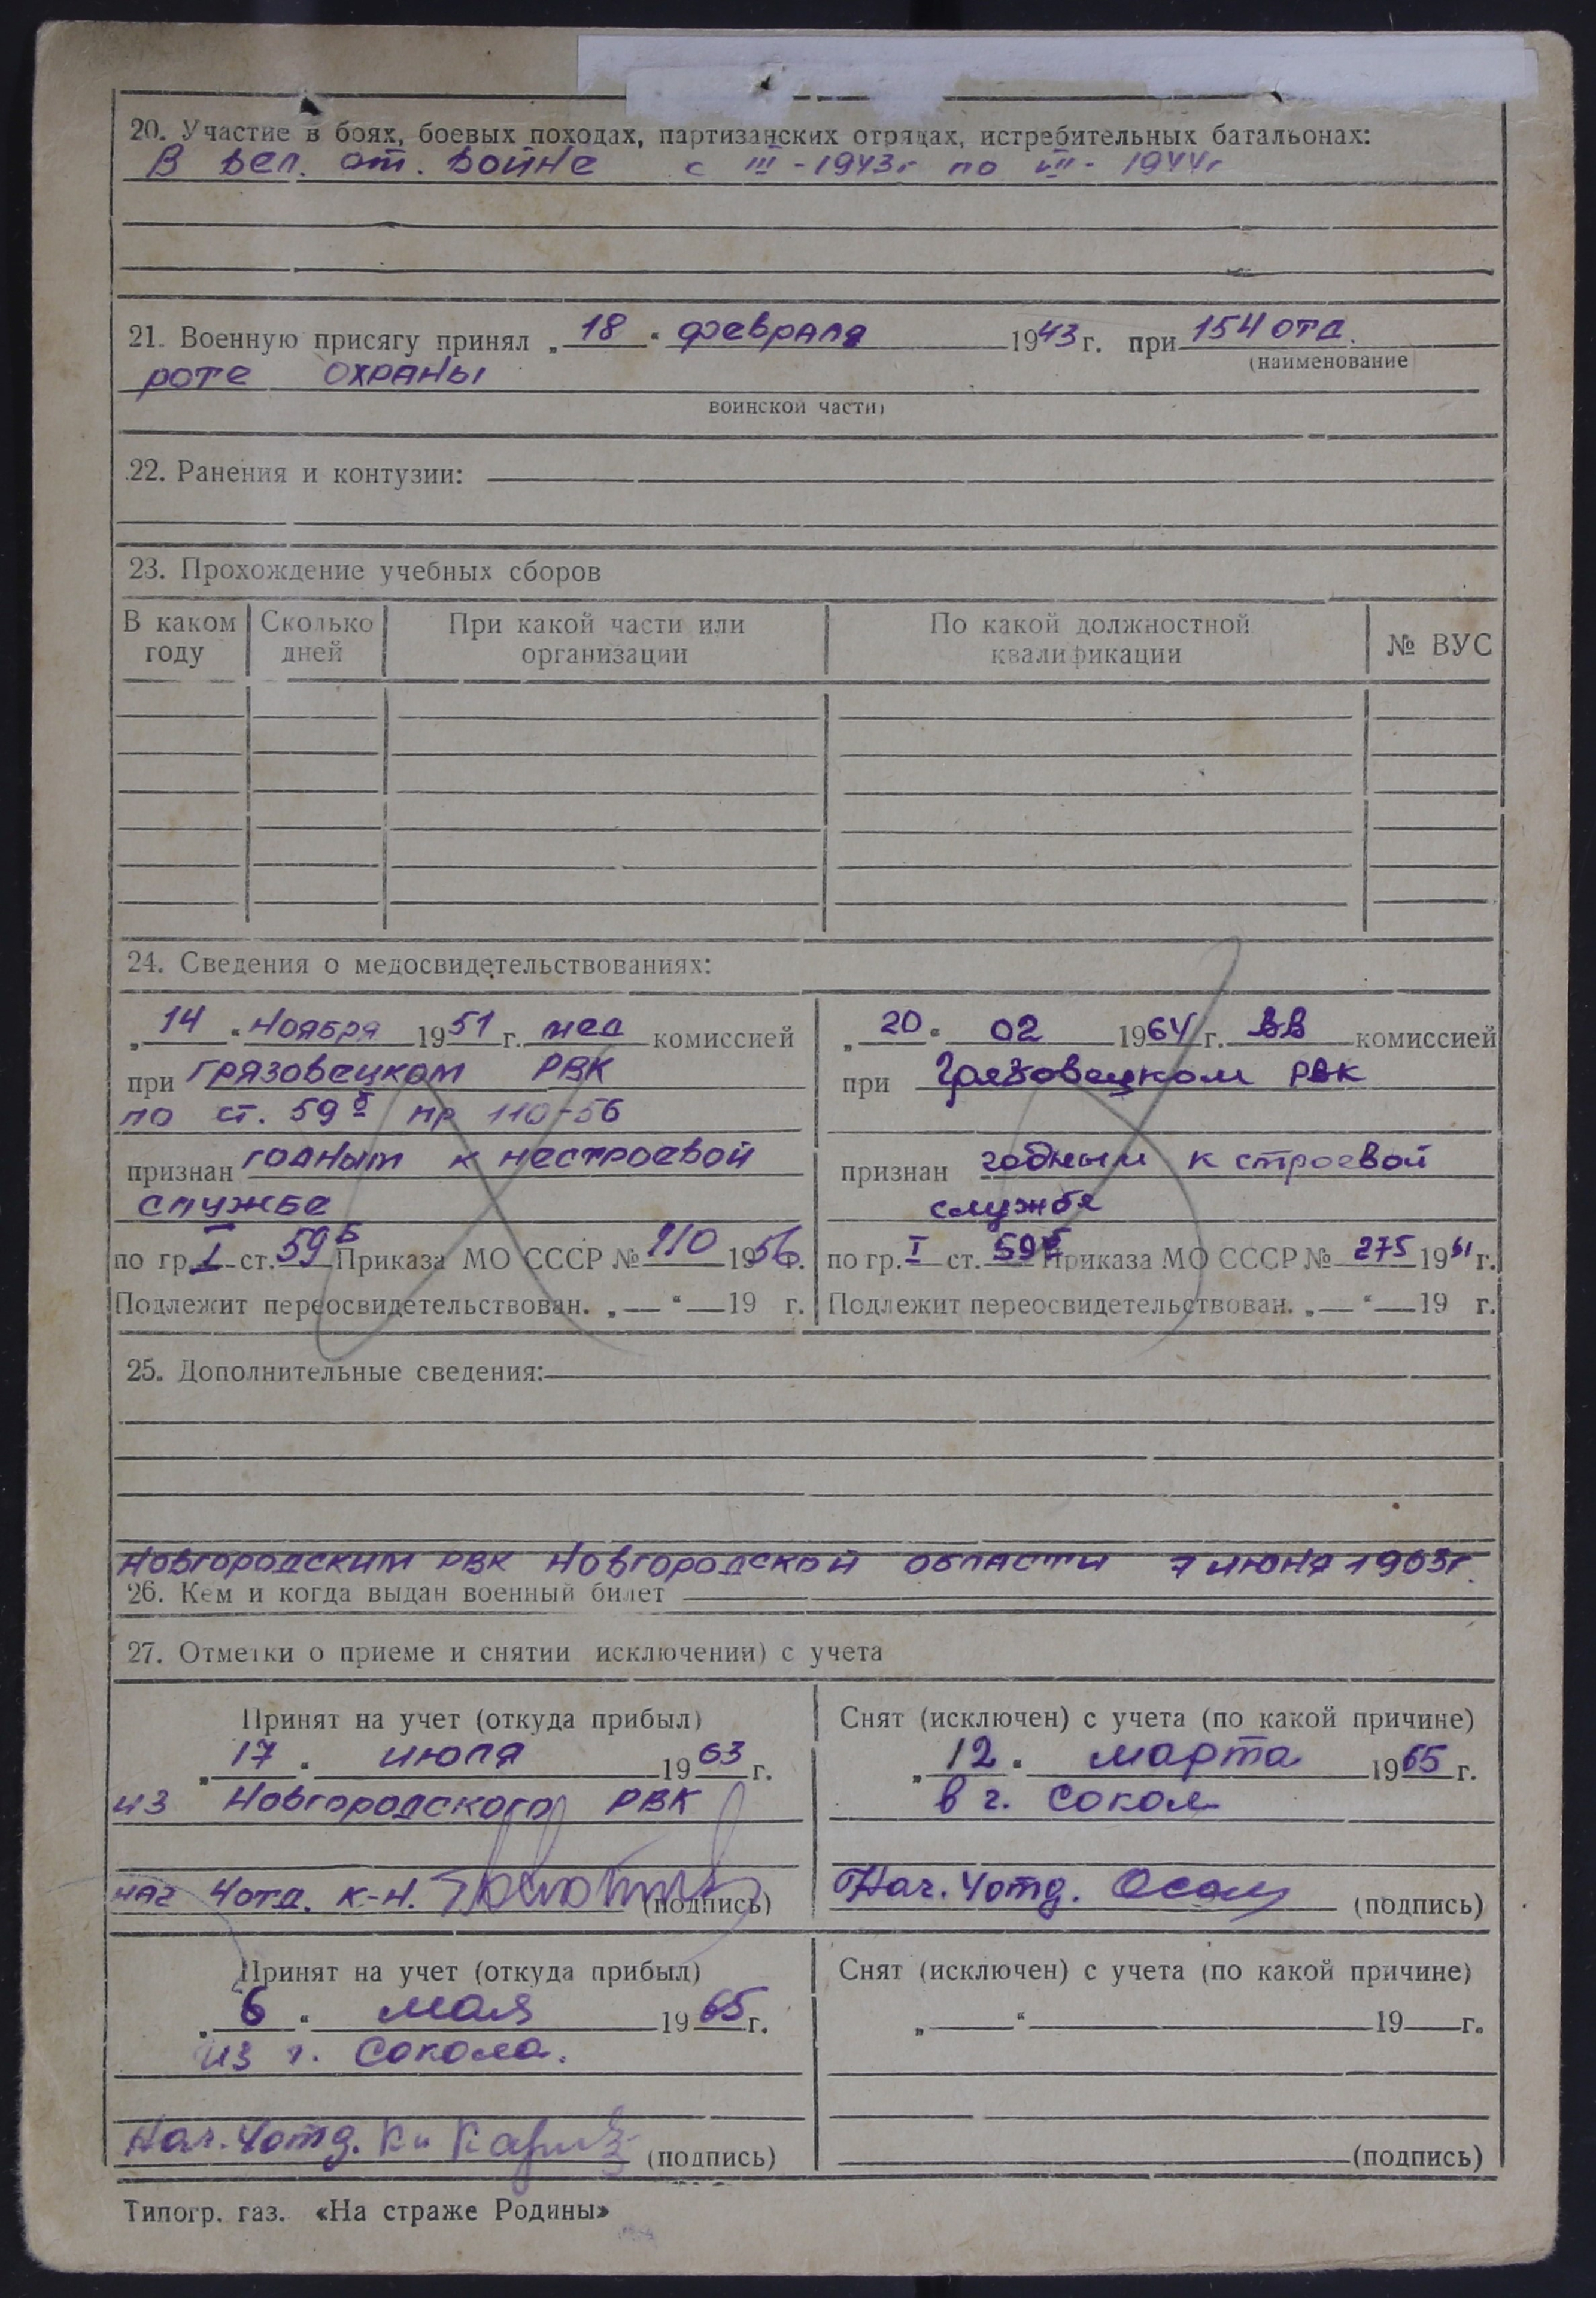 20. Участие в боях, боевых походах, партизанских отрядах, истребительных батальонах:
В Вел. от. войне с III - 1943г по VII - 1944г
21. Военную присягу принял „18“ февраля 1943 г. при 154 отд.
(наименование
роте охраны
воинской части)
22. Ранения и контузии:
23. Прохождение учебных сборов
В каком году Сколько дней При какой части или организации По какой должностной квалификации № ВУС
24. Сведения о медосвидетельствованиях:
„14“ ноября 1951 г. мед комиссией
при Грязовецком РВК
по ст. 59б пр 110-56
признан годным к нестроевой
службе
по гр. I ст. 59б Приказа МО СССР № 110 1956г.
Подлежит переосвидетельствован. „ “ 19 г.
„20“ 02 1964 г. ВВ комиссией
при Грязовецком РВК
признан годным к строевой
службе
по гр. I ст. 59б Приказа МО СССР № 275 1961 г.
Подлежит переосвидетельствован. „ “ 19 г.
25. Дополнительные сведения:
Новгородским РВК Новгородской области 7 июня 1963г.
26. Кем и когда выдан военный билет
27. Отметки о приеме и снятии исключении) с учета
Принят на учет (откуда прибыл)
„17“ июля 1963 г.
из Новгородского РВК
нач 4отд. к-н. (подпись)
Снят (исключен) с учета (по какой причине)
„12“ марта 1965 г.
в г. Сокол
Нач. 4отд. (подпись)
Принят на учет (откуда прибыл)
„6“ мая 1965 г.
из г. Сокола.
Нач. 4отд. к-н (подпись)
Снят (исключен) с учета (по какой причине)
„ “ 19 г.
(подпись)
Типогр. газ. «На страже Родины»